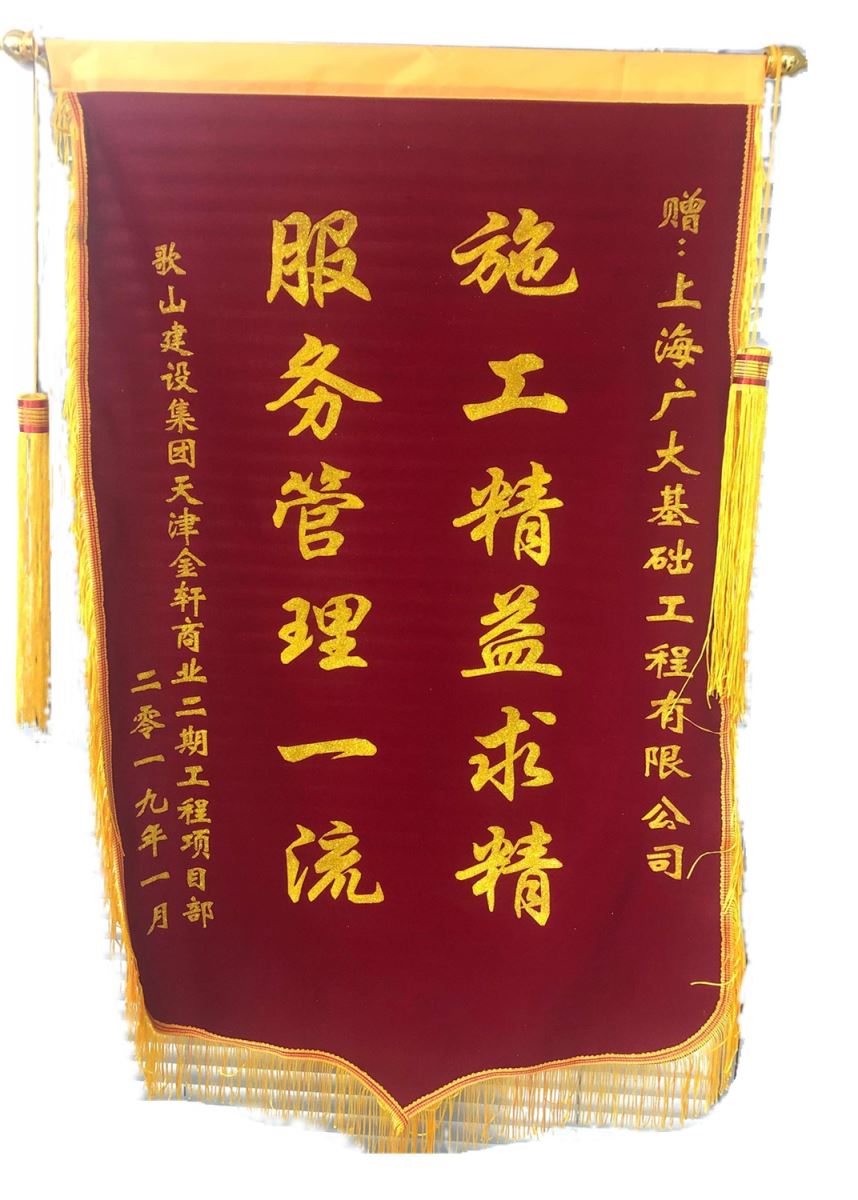 赠：上海广大基础工程有限公司
施工精益求精
服务管理一流
歌山建设集团天津金轩商业二期工程项目部
二零一九年一月